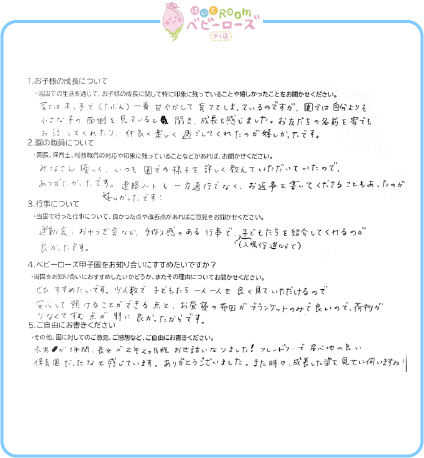 ほいくROOM
ベビーローズ
甲子園
1.お子様の成長について
・当園での生活を通じて、お子様の成長に関して特に印象に残っていることや嬉しかったことをお聞かせください。
家では末っ子で(たぶん)一番甘やかして育ててしまっているのですが、園では自分よりも
小さな子の面倒を見ていると聞き、成長を感じました。お友だちの名前を家でも
お話ししてくれたり、仲良く楽しく過ごしてくれたのが嬉しかったです。
2.園の職員について
・園長、保育士、給食職員の対応や印象に残っていることなどがあれば、お聞かせください。
みなさん優しく、いつも園での様子を詳しく教えていただいていたので、
ありがたかったです。連絡ノートも一方通行でなく、お返事を書いてくださることもあったのが
嬉しかったです!
3.行事について
・当園で行った行事について、良かった点や改善点があればご意見をお聞かせください。
運動会、おゆうぎ会など、手作り感のある行事で、子どもたちを紹介してくれるのが
(入場行進などで)
良かったです。
4.ベビーローズ甲子園をお知り合いにすすめたいですか?
・当園をお知り合いにおすすめしたいかどうか、またその理由についてお聞かせください。
ぜひすすめたいです。少人数で子どもたち一人一人を良く見ていただけるので
安心して預けることができる点と、お昼寝の布団がブランケットのみで良いので、荷物が
少なくてすむ点が特に良かったからです。
5.ご自由にお書きください
・その他、園に対してのご意見、ご感想など、ご自由にお書きください。
が1年間、長女が2年2ヶ月程お世話になりました! フレンドリーで居心地の良い
保育園だったなと感じています。ありがとうございました。また時々、成長した姿を見せに伺いますね!